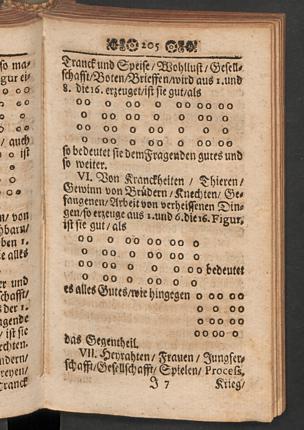 so ma-
gur ei-
205
Tranck und Speise/Wohllust/Gesell-
schafft/Boten/Brieffen/wird aus 1. und
8. die 16. erzeuget/ist sie gut/als
/ auch
ist
so bedeutet sie dem Fragenden gutes und
so weiter.
VI. Von Kranckheiten / Thieren/
Gewinn von Brüdern/Knechten/Ge-
fangenen/Arbeit von verheissenen Din-
gen/so erzeuge aus 1. und 6. die 16. Figur,
ist sie gut/als
on/ von
ben 1.
bedeutet
es alles Gutes/wie hingegen
er und
schafft/
der 1.
agende
/ ist sie
das Gegentheil.
VII. Heyrahten/ Frauen/ Jungfer-
schafft/Gesellschafft/ Spielen/ Proceß,
J 7 Krieg/
chten.
ndern/
Tranck